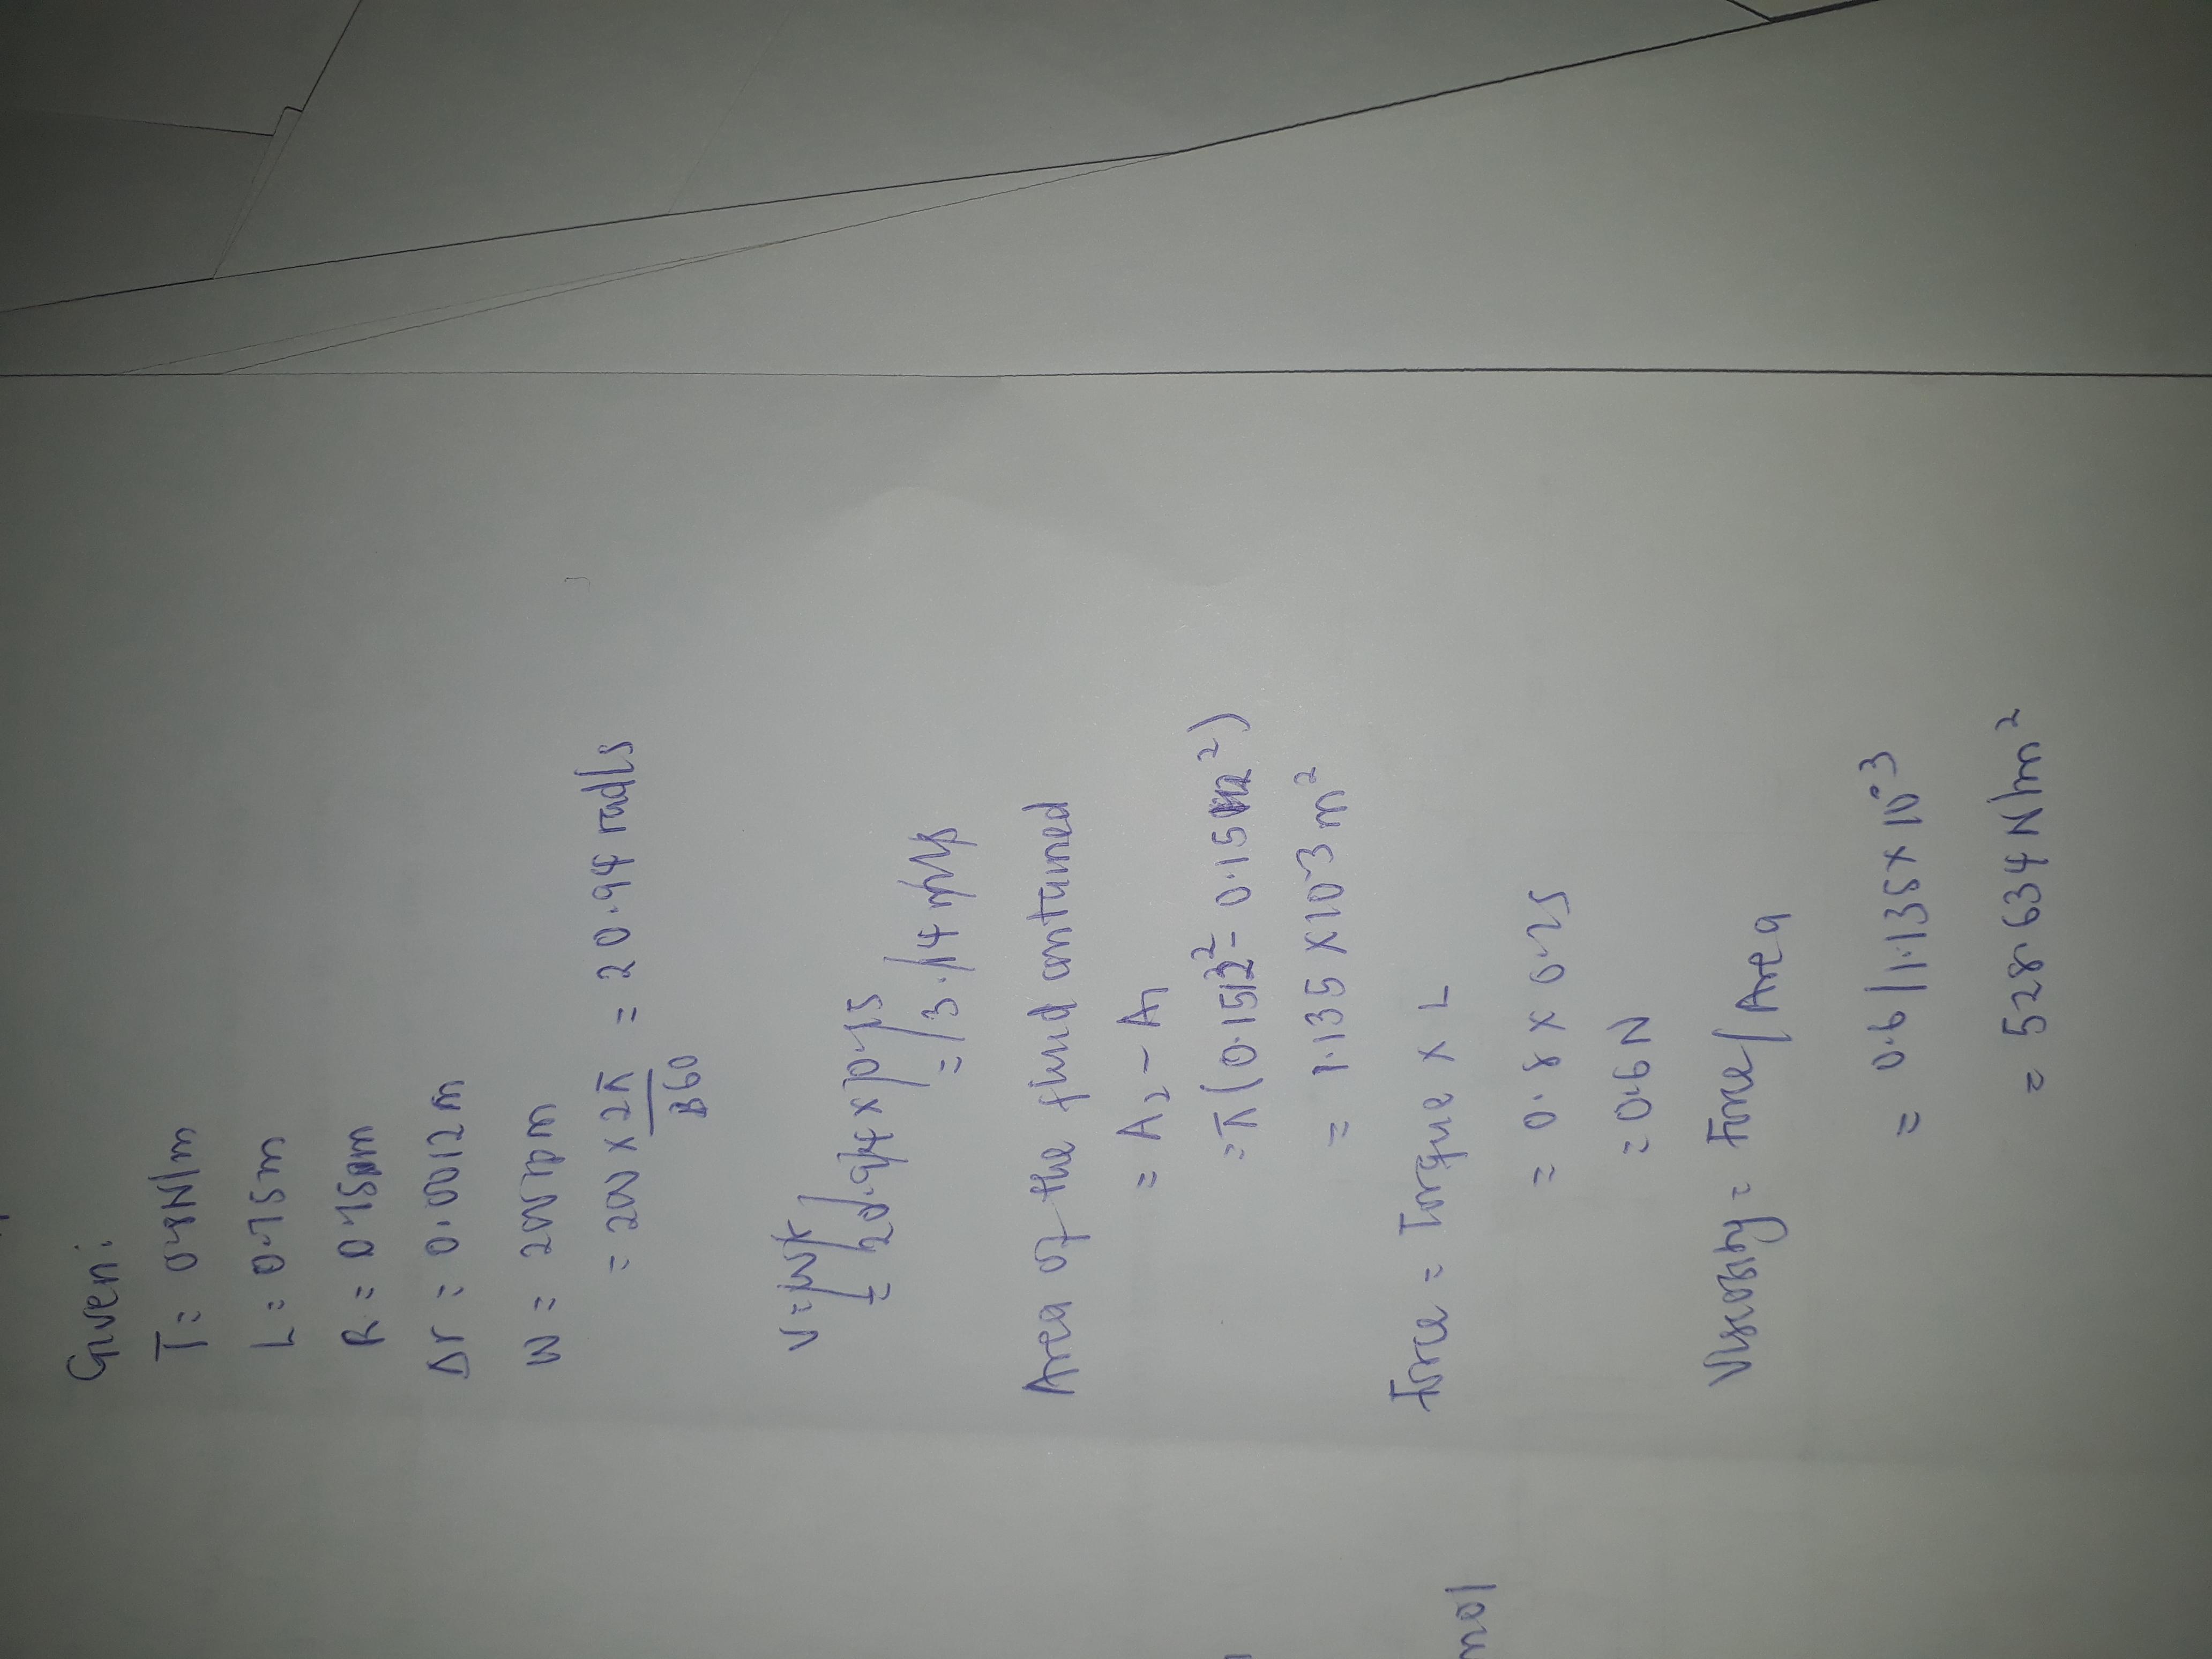 Given:
T = 0.8N/m
L = 0.75m
R = 0.15m
Δr = 0.0012m
W = 200rpm
= 200 x 2π/60 = 20.94 rad/s
V = wr
= 20.94 x 0.15
= 3.14 m/s
Area of the fluid contained
= A2 - A1
= π(0.1512² - 0.15²)
= 1.135 x 10^-3 m²
Force = Torque x L
= 0.8 x 0.75
= 0.6N
Viscosity = Force/Area
= 0.6/1.135 x 10^-3
= 528.634 N/m²
mol